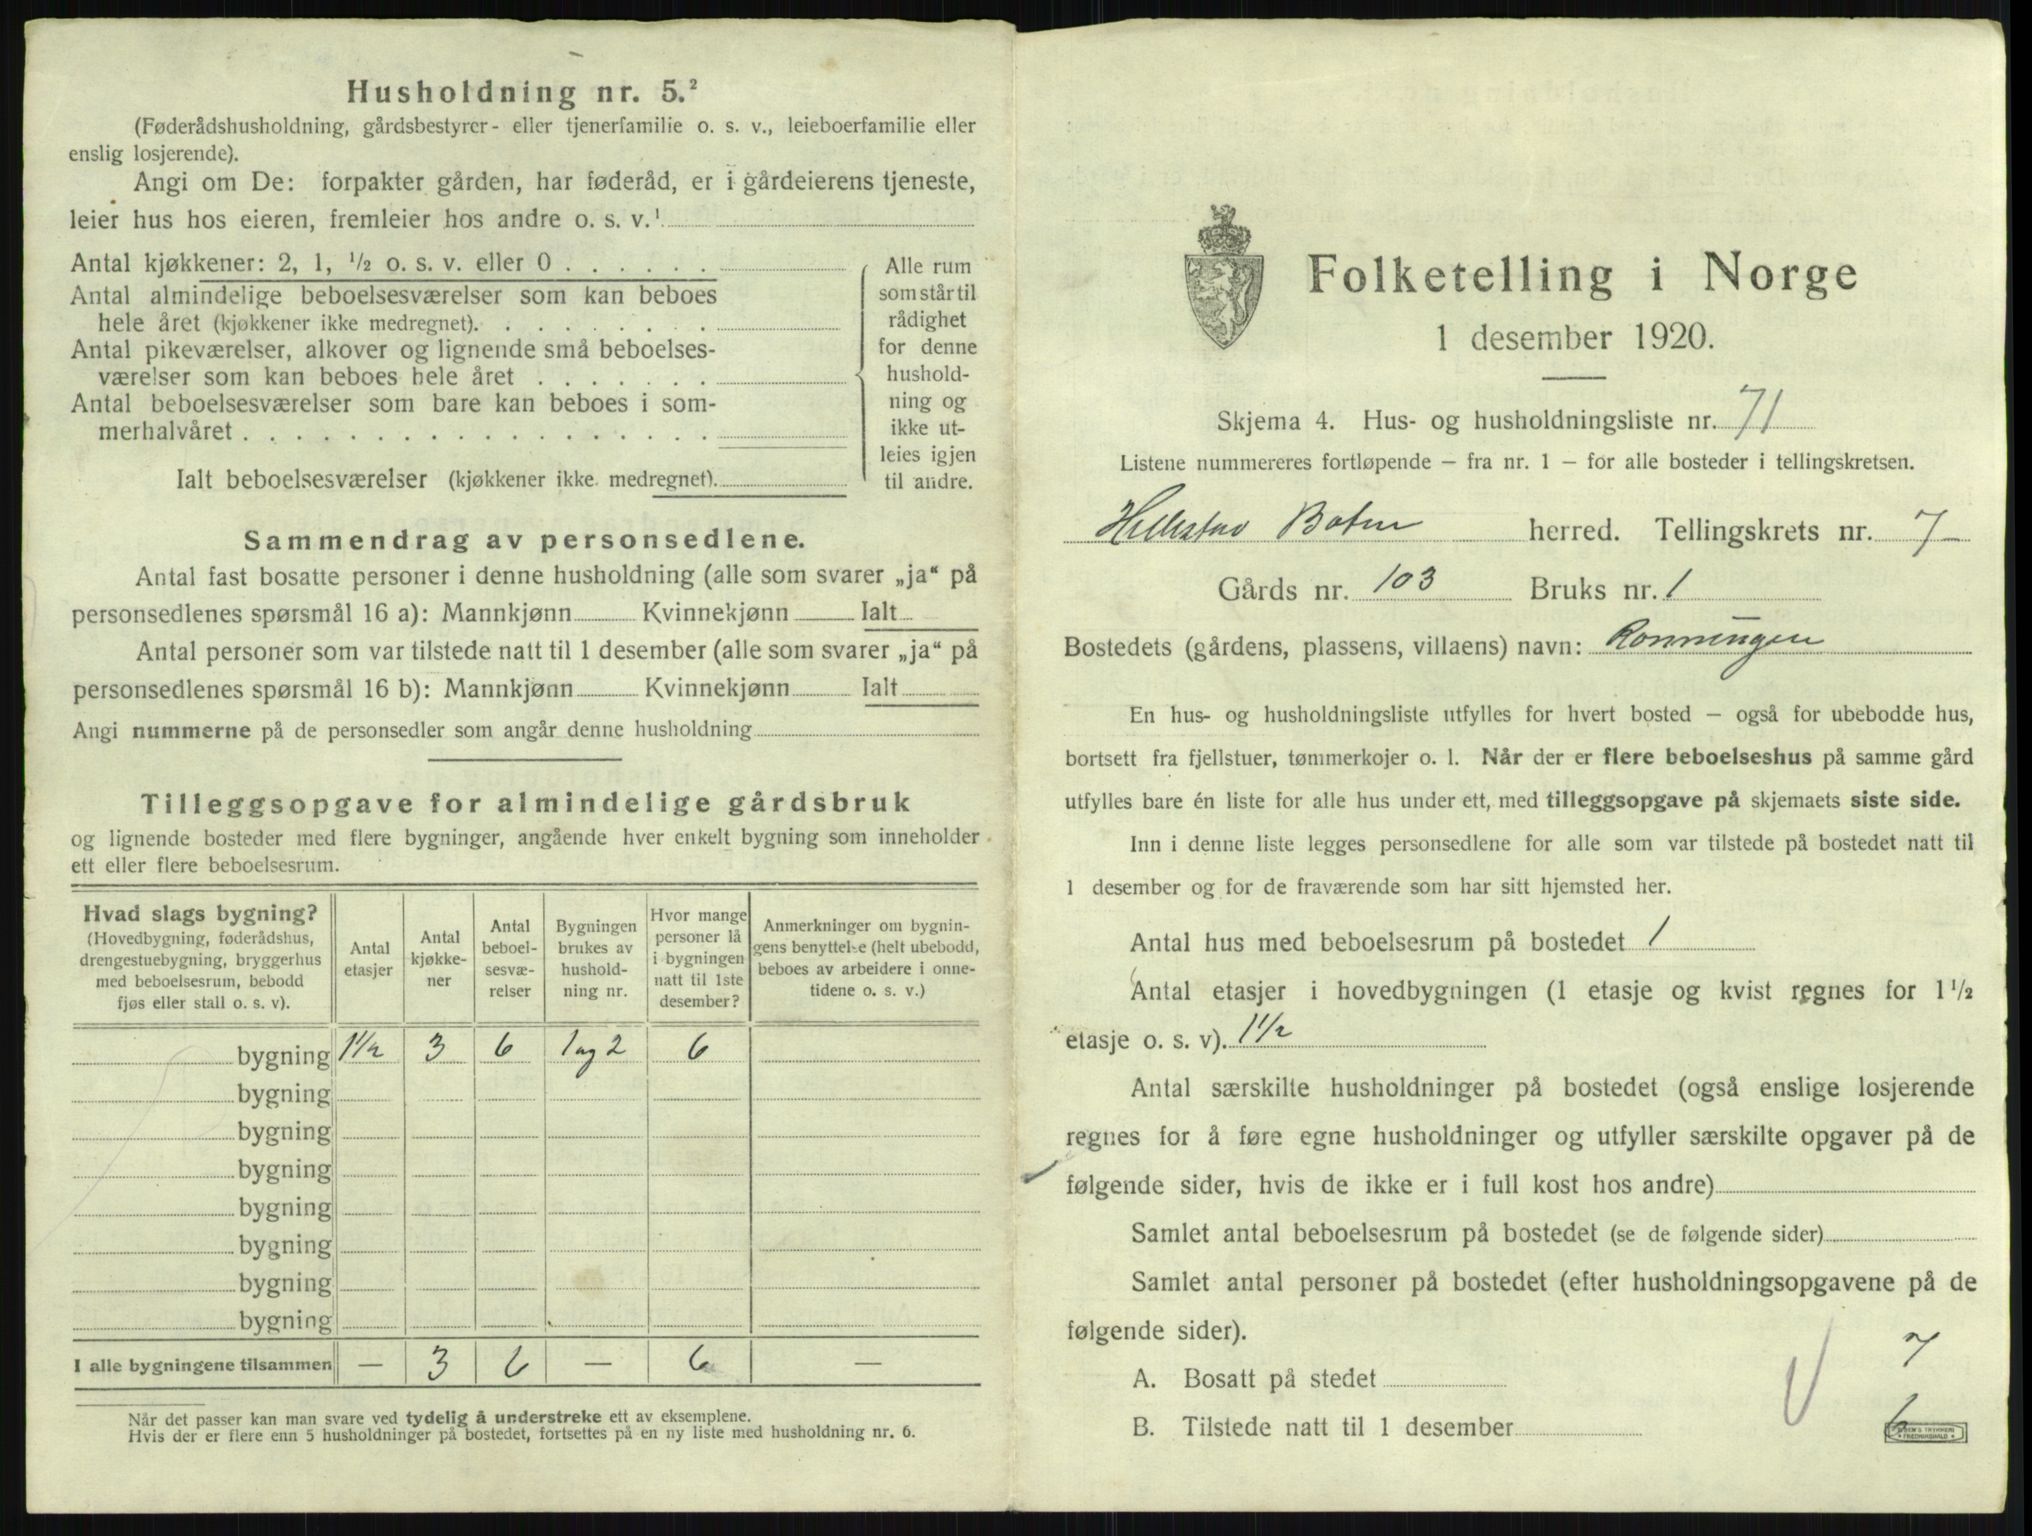 Husholdning nr. 5.²
(Føderådshusholdning, gårdsbestyrer- eller tjenerfamilie o. s. v., leieboerfamilie eller
enslig losjerende).
Angi om De: forpakter gården, har føderåd, er i gårdeierens tjeneste,
leier hus hos eieren, fremleier hos andre o. s. v.¹
Antal kjøkkener: 2, 1, ½ o. s. v. eller 0 . . . . . .
Antal almindelige beboelsesværelser som kan beboes
hele året (kjøkkener ikke medregnet). . . . . . . . .
Antal pikeværelser, alkover og lignende små beboelses-
værelser som kan beboes hele året . . . . . . .
Antal beboelsesværelser som bare kan beboes i som-
merhalvåret . . . . . . . . . . . . . . . . . .
Ialt beboelsesværelser (kjøkkener ikke medregnet).
Alle rum
som står til
rådighet
for denne
hushold-
ning og
ikke ut-
leies igjen
til andre.
Sammendrag av personsedlene.
Antal fast bosatte personer i denne husholdning (alle som svarer „ja“ på
personsedlenes spørsmål 16 a): Mannkjønn Kvinnekjønn Ialt
Antal personer som var tilstede natt til 1 desember (alle som svarer „ja“ på
personsedlenes spørsmål 16 b): Mannkjønn Kvinnekjønn Ialt
Angi nummerne på de personsedler som angår denne husholdning
Tilleggsopgave for almindelige gårdsbruk
og lignende bosteder med flere bygninger, angående hver enkelt bygning som inneholder
ett eller flere beboelsesrum.
Hvad slags bygning?
(Hovedbygning, føderådshus,
drengestuebygning, bryggerhus
med beboelsesrum, bebodd
fjøs eller stall o. s. v).
Antal
etasjer
Antal
kjøkke-
ner
Antal
beboel-
sesvæ-
relser
Bygningen
brukes av
hushold-
ning nr.
Hvor mange
personer lå
i bygningen
natt til 1ste
desember?
Anmerkninger om bygnin-
gens benyttelse (helt ubebodd,
beboes av arbeidere i onne-
tidene o. s. v.)
bygning 1½ 3 6 1 og 2 6
bygning
bygning
bygning
bygning
bygning
bygning
bygning
I alle bygningene tilsammen — 3 6 — 6 —
Når det passer kan man svare ved tydelig å understreke ett av eksemplene.
Hvis der er flere enn 5 husholdninger på bostedet, fortsettes på en ny liste med husholdning nr. 6.
Folketelling i Norge
1 desember 1920.
Skjema 4. Hus- og husholdningsliste nr. 71
Listene nummereres fortløpende – fra nr. 1 – for alle bosteder i tellingskretsen.
herred. Tellingskrets nr. 7
Gårds nr. 103 Bruks nr. 1
Bostedets (gårdens, plassens, villaens) navn: Rønningen
En hus- og husholdningsliste utfylles for hvert bosted – også for ubebodde hus,
bortsett fra fjellstuer, tømmerkojer o. l. Når der er flere beboelseshus på samme gård
utfylles bare én liste for alle hus under ett, med tilleggsopgave på skjemaets siste side.
Inn i denne liste legges personsedlene for alle som var tilstede på bostedet natt til
1 desember og for de fraværende som har sitt hjemsted her.
Antal hus med beboelsesrum på bostedet 1
Antal etasjer i hovedbygningen (1 etasje og kvist regnes for 1½
etasje o. s. v). 1½
Antal særskilte husholdninger på bostedet (også enslige losjerende
regnes for å føre egne husholdninger og utfyller særskilte opgaver på de
følgende sider, hvis de ikke er i full kost hos andre)
Samlet antal beboelsesrum på bostedet (se de følgende sider)
Samlet antal personer på bostedet (efter husholdningsopgavene på de
følgende sider).
A. Bosatt på stedet 7
B. Tilstede natt til 1 desember 6